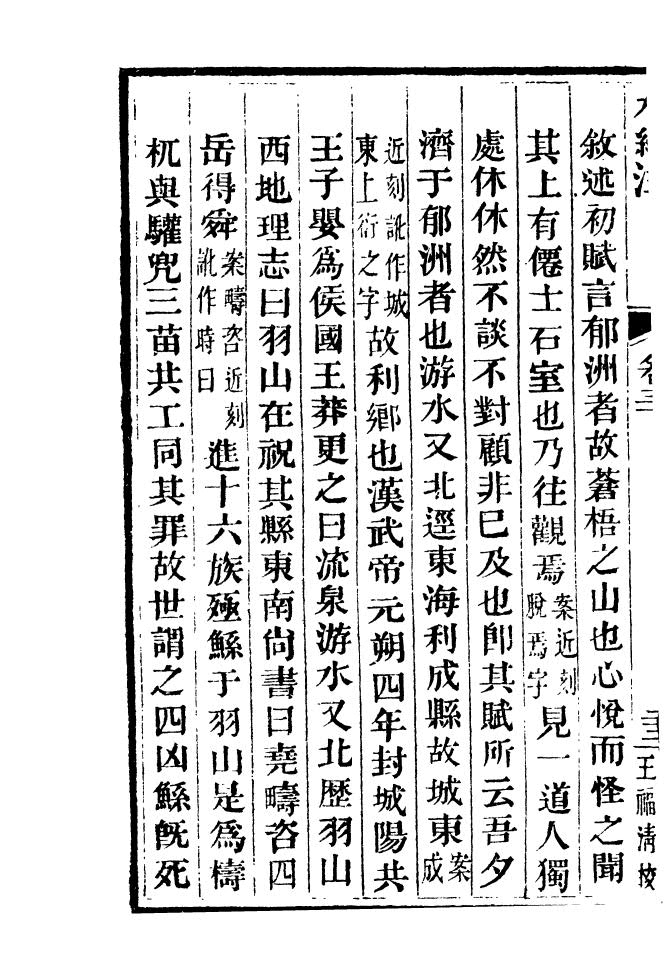 敘述初賦言郁洲者故蒼梧之山也心悅而怪之聞
其上有僊士石室也乃往觀焉案近刻脫焉字見一道人獨
處休休然不談不對顧非已及也卽其賦所云吾夕
濟于郁洲者也游水又北逕東海利成縣故城東案成
近刻訛作城東上衍之字故利鄉也漢武帝元朔四年封城陽共
王子嬰爲侯國王莽更之曰流泉游水又北歷羽山
西地理志曰羽山在祝其縣東南尙書曰堯疇咨四
岳得舜案疇咨近刻訛作時曰進十六族殛鯀于羽山是爲檮
杌與驩兜三苗共工同其罪故世謂之四凶鯀旣死